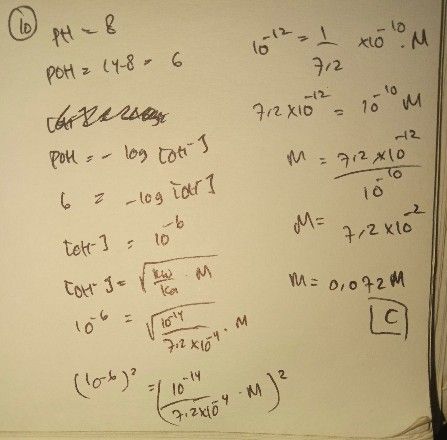 10
PH = 8
POH = 14-8 = 6
POH = - log [OH-]
6 = -log [OH-]
[OH-] = 10^-6
[OH-] = √(Kw/Ka · M)
10^-6 = √(10^-14/7,2x10^-4 · M)
(10^-6)^2 = (10^-14/7,2x10^-4 · M)^2
10^-12 = 1/7,2 x10^-10 · M
7,2x10^-12 = 10^-10 M
M = 7,2x10^-12/10^-10
M = 7,2x10^-2
M = 0,072 M
C